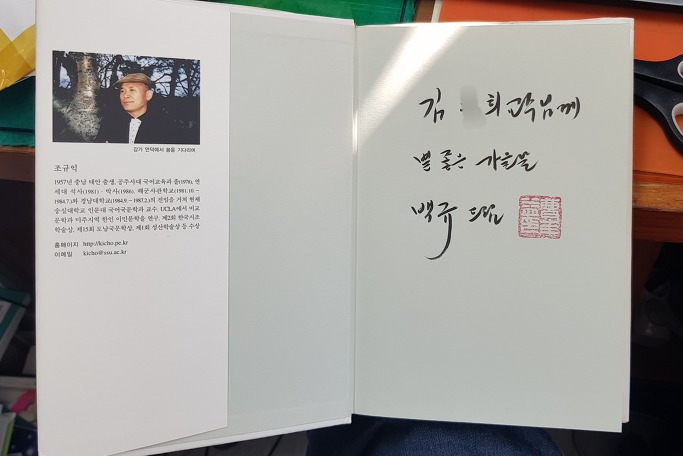 강가 언덕에서 봄을 기다리며
조규익
1957년 충남 태안 출생. 공주사대 국어교육과 졸(1978), 연
세대 석사(1981)·박사(1986). 해군사관학교(1981.10.~
1984.7.)와 경남대학교(1984.9~1987.2.)의 전임을 거쳐 현재
숭실대학교 인문대 국어국문학과 교수. UCLA에서 비교
문학과 미주지역 한인 이민문학을 연구. 제2회 한국시조
학술상, 제15회 도남국문학상, 제1회 성산학술상 등 수상
홈페이지 http://kicho.pe.kr
이메일 kicho@ssu.ac.kr
김 희 과장님께
볕 좋은 가을날
백규 드림